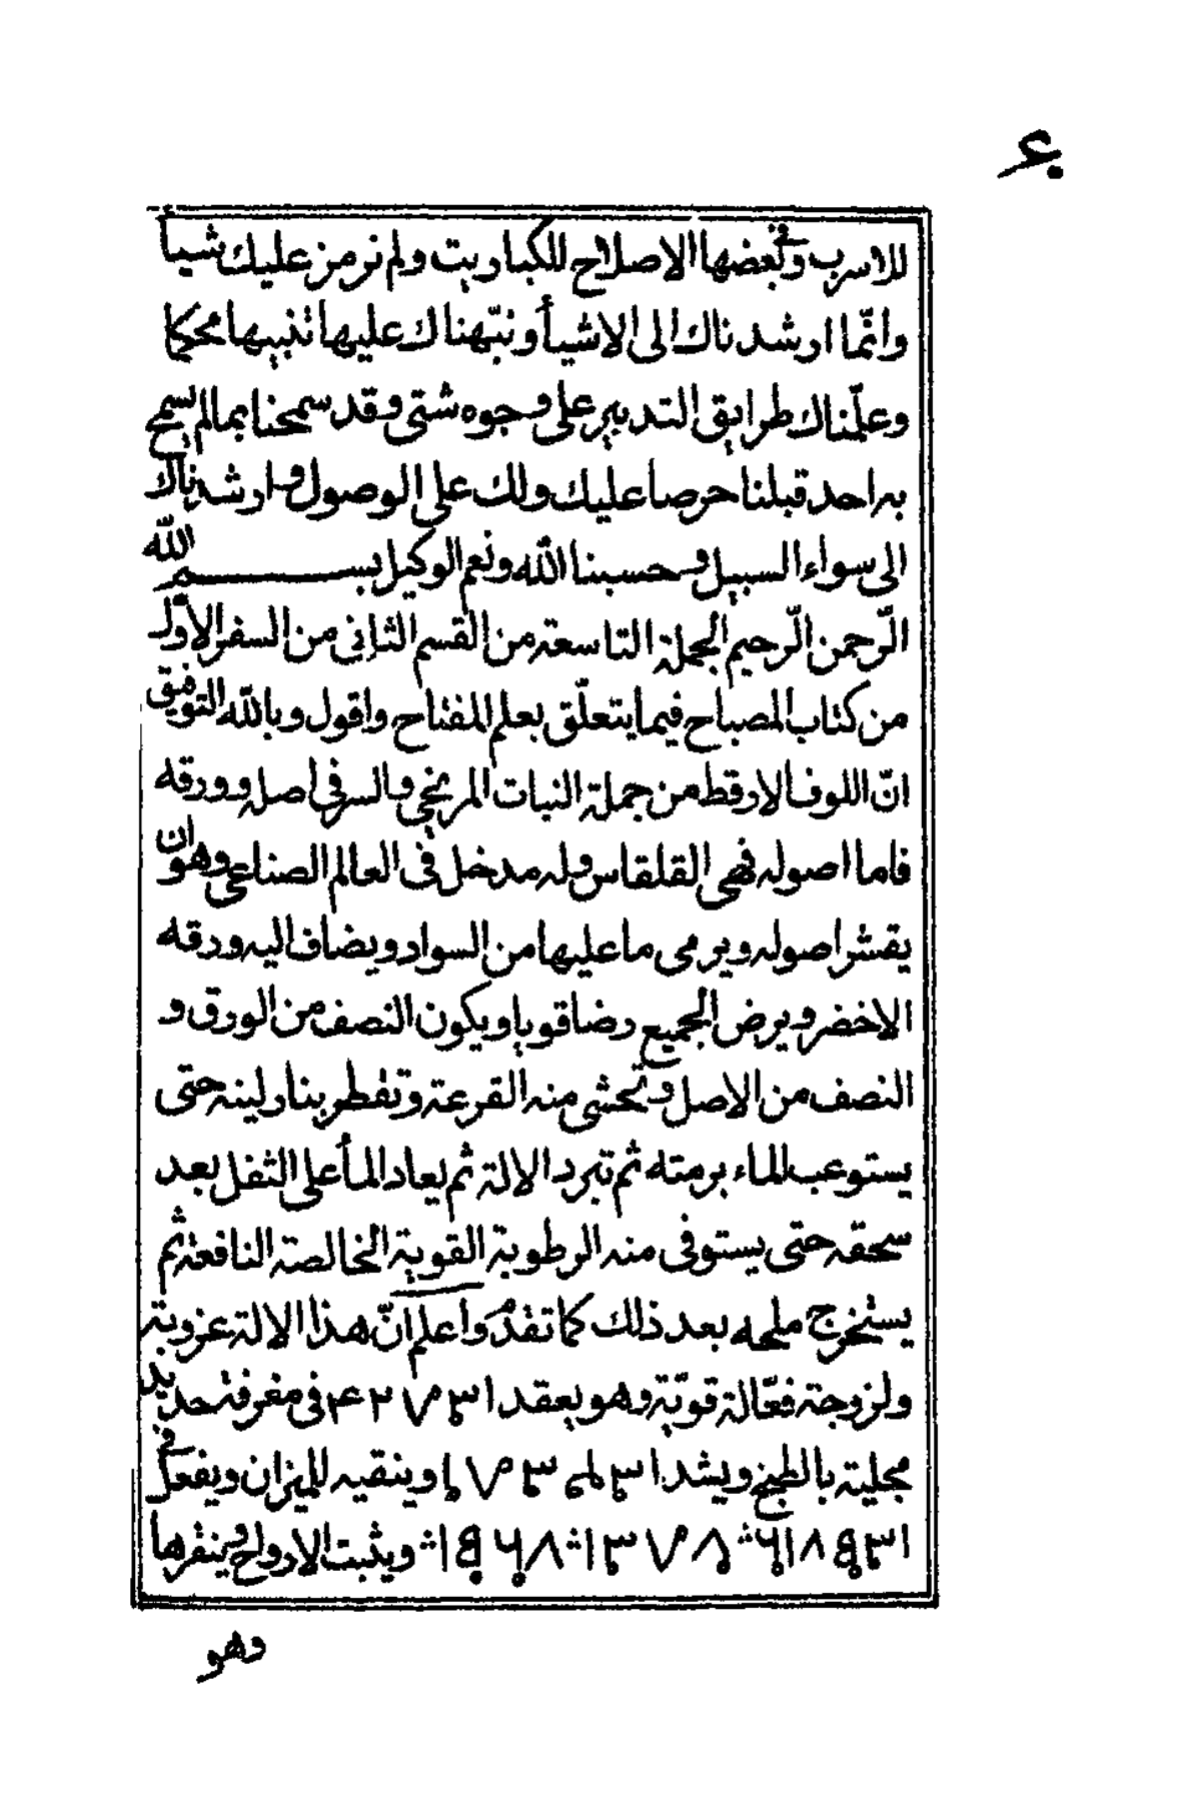 للاسرب وفى بعضها الاصلاح للكباريت ولم نرمز عليك شيأ
وانّما ارشدناك الى الاشيأ ونبّهناك عليها تنبيها محكما
وعلّمناك طرايق التدبير على وجوه شتى وقد سمحنا بما لم يسمح
به احد قبلنا حرصا عليك ولك على الوصول وارشدناك
الى سواء السبيل وحسبنا الله ونعم الوكيل بسم الله
الرّحمن الرّحيم الجملة التاسعة من القسم الثانى من السفر الاوّل
من كتاب المصباح فيما يتعلّق بعلم المفتاح واقول وبالله التوفيق
انّ اللوف الارقط من جملة النبات المريخى والسر فى اصله وورقه
فاما اصوله فهى القلقاس وله مدخل فى العالم الصناعى وهو ان
يقشر اصوله ويرمى ما عليها من السواد ويضاف اليه ورقه
الاخضر ويرض الجميع رضا قويا ويكون النصف من الورق و
النصف من الاصل وتحشى منه القرعة وتقطر بنار لينه حتى
يستوعب الماء برمته ثم تبرد الالة ثم يعاد المأ على الثفل بعد
سحقه حتى يستوفى منه الرطوبة القوية الخالصة النافعة ثم
يستخرج ملحه بعد ذلك كما تقدم واعلم انّ هذا الالة عزوبة
ولزوجة فعّالة قويّة وهو يعقد فى مغرفة حديد
مجلية بالطبخ ويشد وينقيه للميزان ويفعل فى
ويثبت الارواح وينقرها
وهو